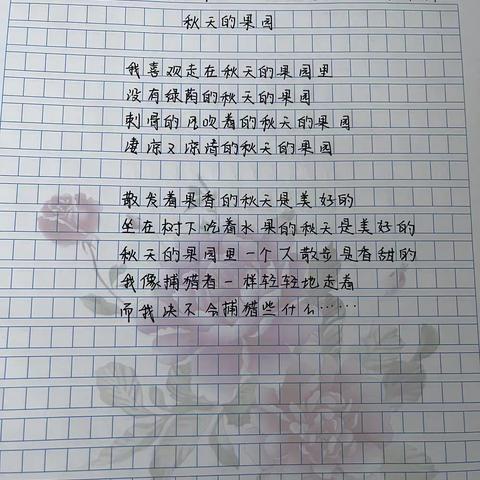 秋天的果园
我喜欢走在秋天的果园里
没有绿荫的秋天的果园
刺骨的风吹着的秋天的果园
凄凉又凉清的秋天的果园
散发着果香的秋天是美好的
坐在树下吃着水果的秋天是美好的
秋天的果园里一个人散步是香甜的
我像捕猎者一样轻轻地走着
而我决不会捕猎些什么……